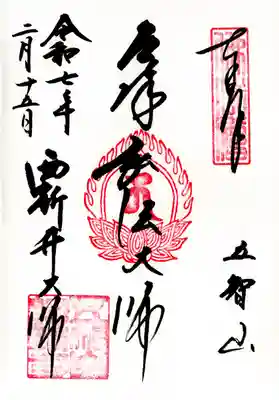 五智山
厄除 弘法大師
令和七年
二月十五日
西新井大師